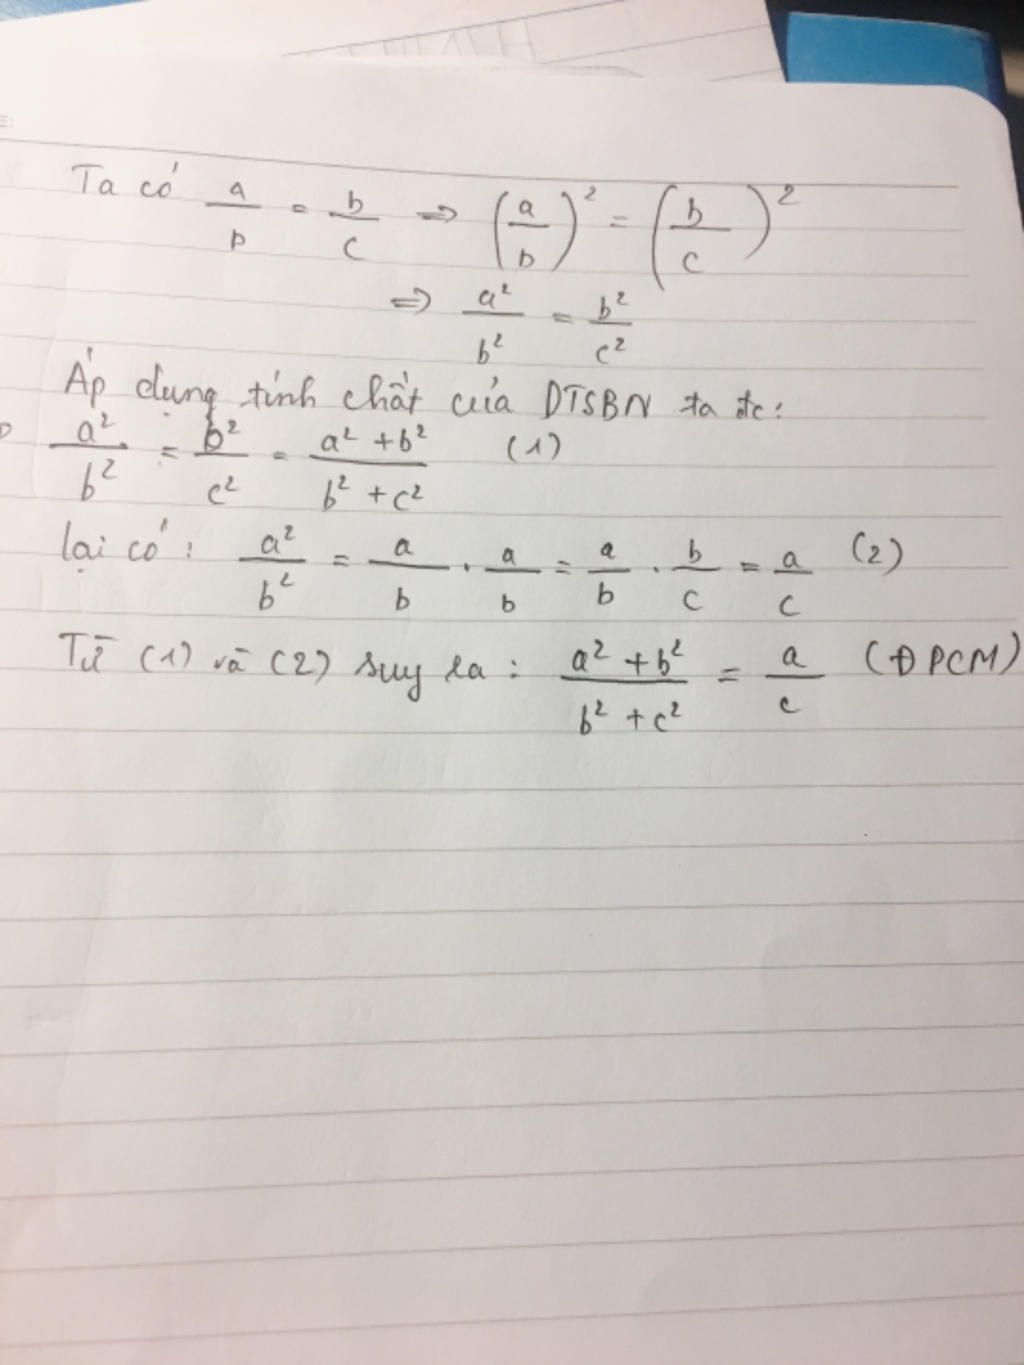 Ta có a/b = b/c => (a/b)² = (b/c)²
=> a²/b² = b²/c²
Áp dụng tính chất của DTSBN ta đc:
a²/b² = b²/c² = (a² + b²)/(b² + c²) (1)
lại có: a²/b² = a/b . a/b = a/b . b/c = a/c (2)
Từ (1) và (2) suy ra: (a² + b²)/(b² + c²) = a/c (ĐPCM)